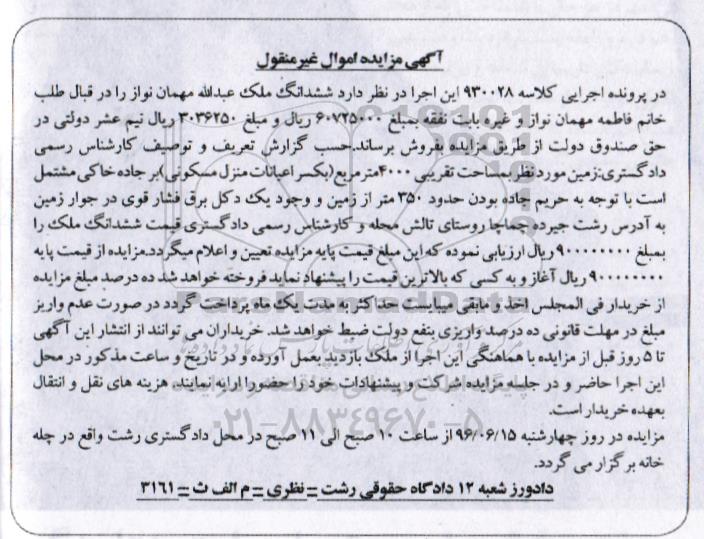 آگهی مزایده اموال غیر منقول
در پرونده اجرایی کلاسه ۹۳۰۰۲۸ این اجرا در نظر دارد ششدانگ ملک عبدالله مهمان نواز را در قبال طلب
خانم فاطمه مهمان نواز و غیره بابت نفقه بمبلغ ۶۰۷۲۵۰۰۰ ریال و مبلغ ۳۰۳۶۲۵۰ ریال نیم عشر دولتی در
حق صندوق دولت از طریق مزایده بفروش برساند.حسب گزارش تعریف و توصیف کارشناس رسمی
دادگستری:زمین مورد نظر بمساحت تقریبی ۴۰۰۰مترمربع(بکسر اعیانات منزل مسکونی)بر جاده خاکی مشتمل
است با توجه به حریم جاده بودن حدود ۳۵۰ متر از زمین و وجود یک دکل برق فشار قوی در جوار زمین
به آدرس رشت جیرده چماچا روستای تالش محله و کارشناس رسمی دادگستری قیمت ششدانگ ملک را
بمبلغ ۹۰۰۰۰۰۰۰۰۰ ریال ارزیابی نموده که این مبلغ قیمت پایه مزایده تعیین و اعلام میگردد.مزایده از قیمت پایه
۹۰۰۰۰۰۰۰۰۰ ریال آغاز و به کسی که بالاترین قیمت را پیشنهاد نماید فروخته خواهد شد ده درصد مبلغ مزایده
از خریدار فی المجلس اخذ و مابقی میبایست حداکثر به مدت یک ماه پرداخت گردد در صورت عدم واریز
مبلغ در مهلت قانونی ده درصد واریزی بنفع دولت ضبط خواهد شد. خریداران می توانند از انتشار این آگهی
تا ۵ روز قبل از مزایده با هماهنگی این اجرا از ملک بازدید بعمل آورده و در تاریخ و ساعت مذکور در محل
این اجرا حاضر و در جلسه مزایده شرکت و پیشنهادات خود را حضورا ارایه نمایند. هزینه های نقل و انتقال
بعهده خریدار است.
مزایده در روز چهارشنبه ۹۶/۰۶/۱۵ از ساعت ۱۰ صبح الی ۱۱ صبح در محل دادگستری رشت واقع در چله
خانه برگزار می گردد.
دادورز شعبه ۱۲ دادگاه حقوقی رشت – نظری – م الف ث – ۳۱۶۱
ParsNamadData
۰۲۱-۸۸۳۴۹۶۷۰-۵